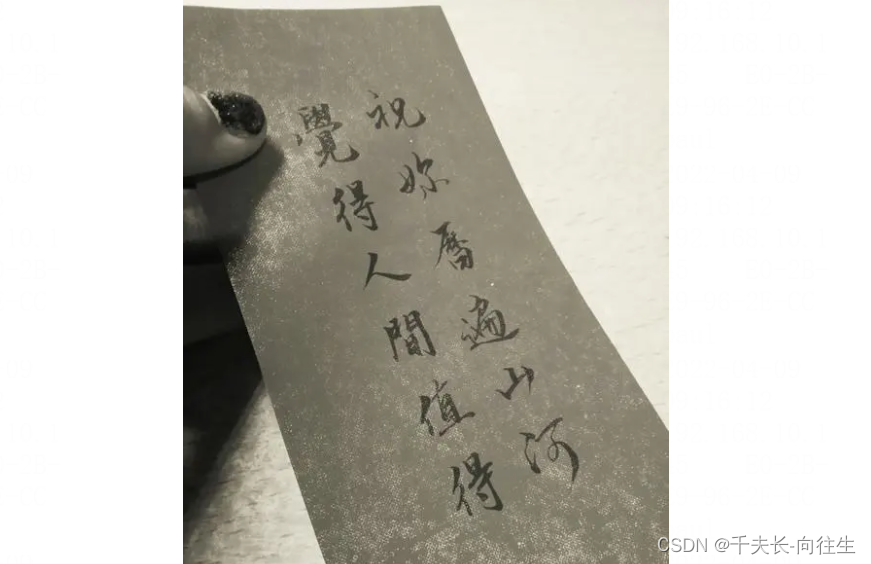 祝妳曆遍山河
覺得人間值得
CSDN @千夫长-向往生